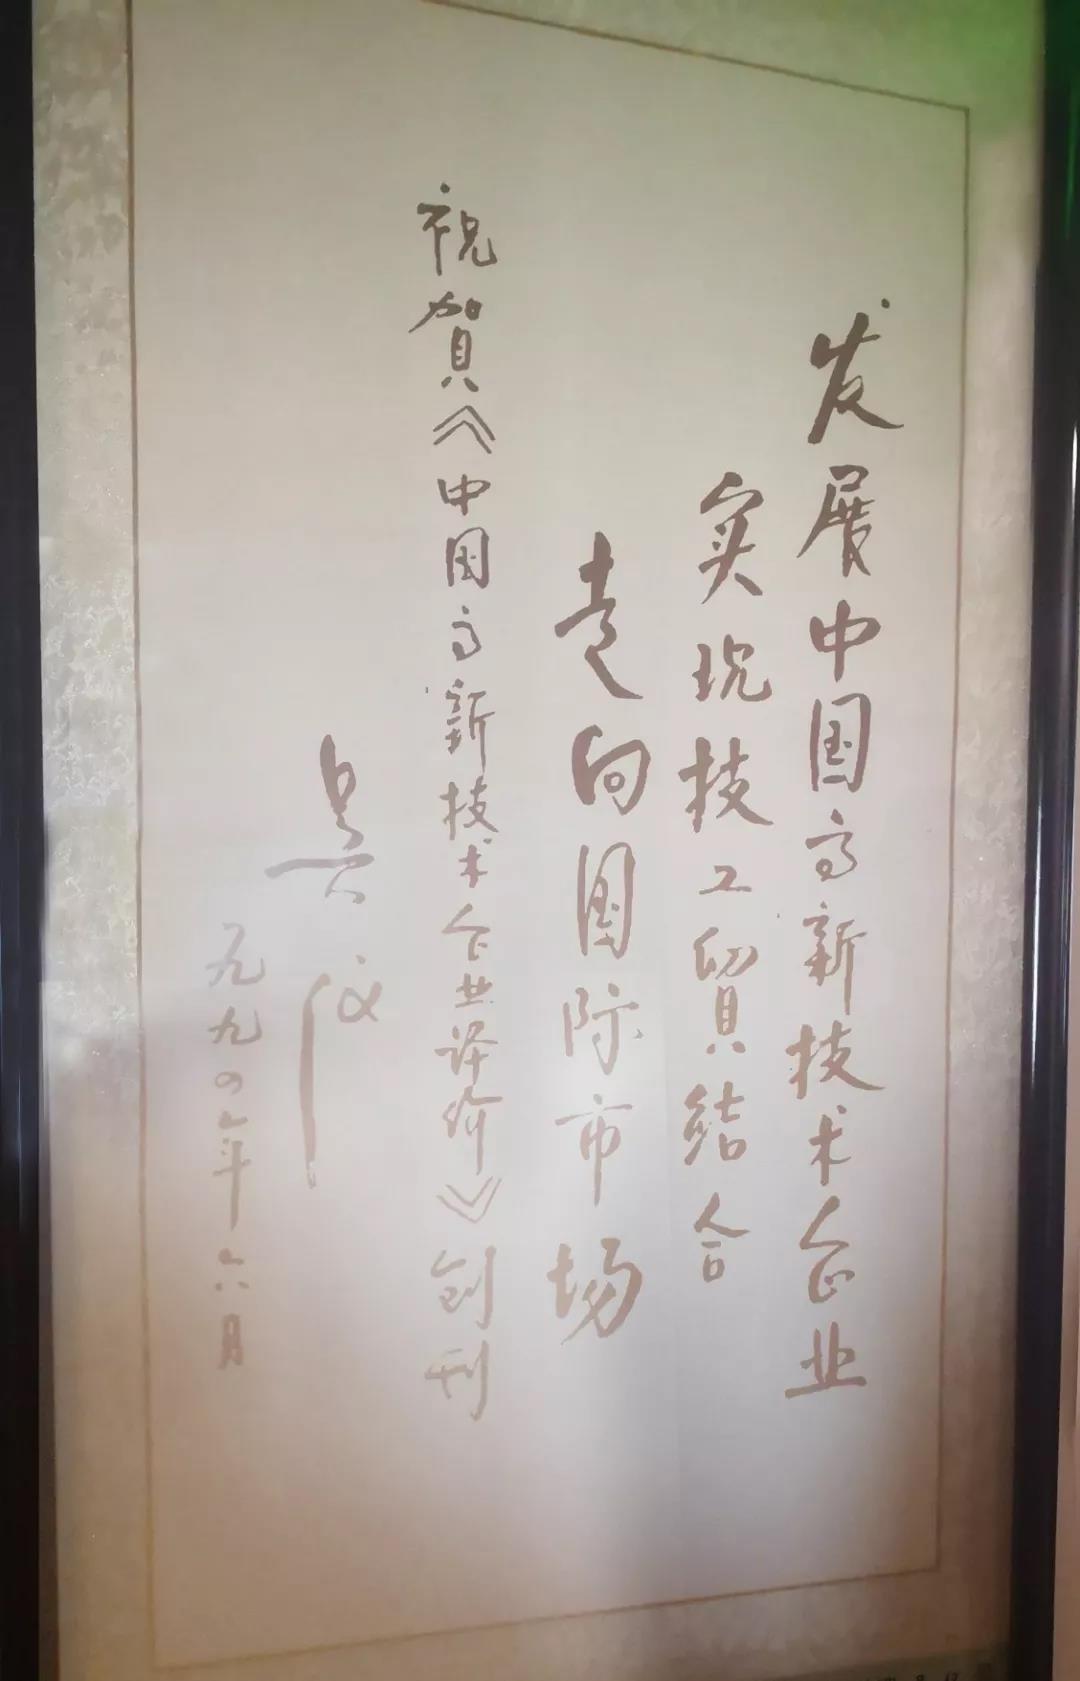 发展中国高新技术企业
实现技工贸结合
走向国际市场
祝贺《中国高新技术企业评价》创刊
吴仪
一九九四年六月